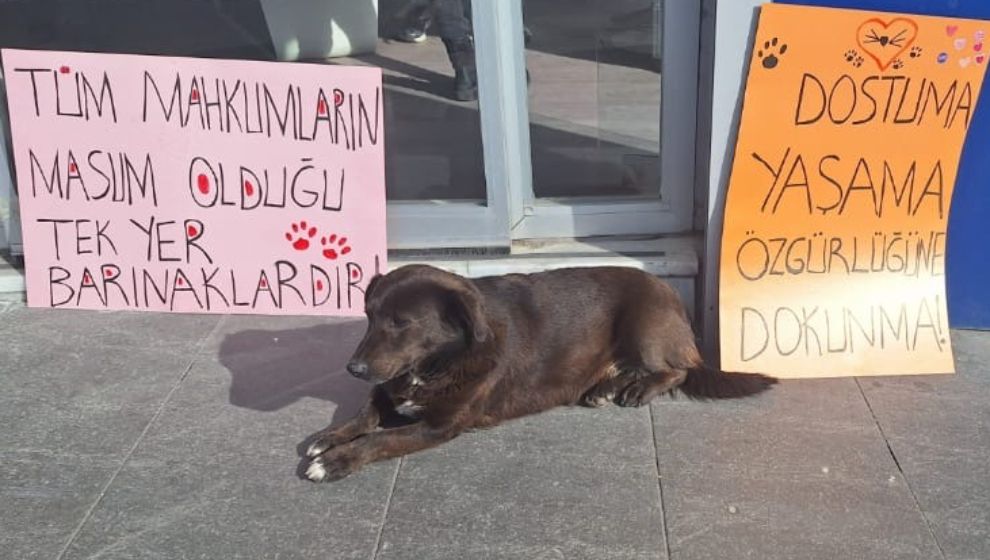 TÜM MAHKUMLARIN
MASUM OLDUĞU
TEK YER
BARINAKLARDIR!
DOSTUMA
YAŞAMA
ÖZGÜRLÜĞÜNE
DOKUNMA!